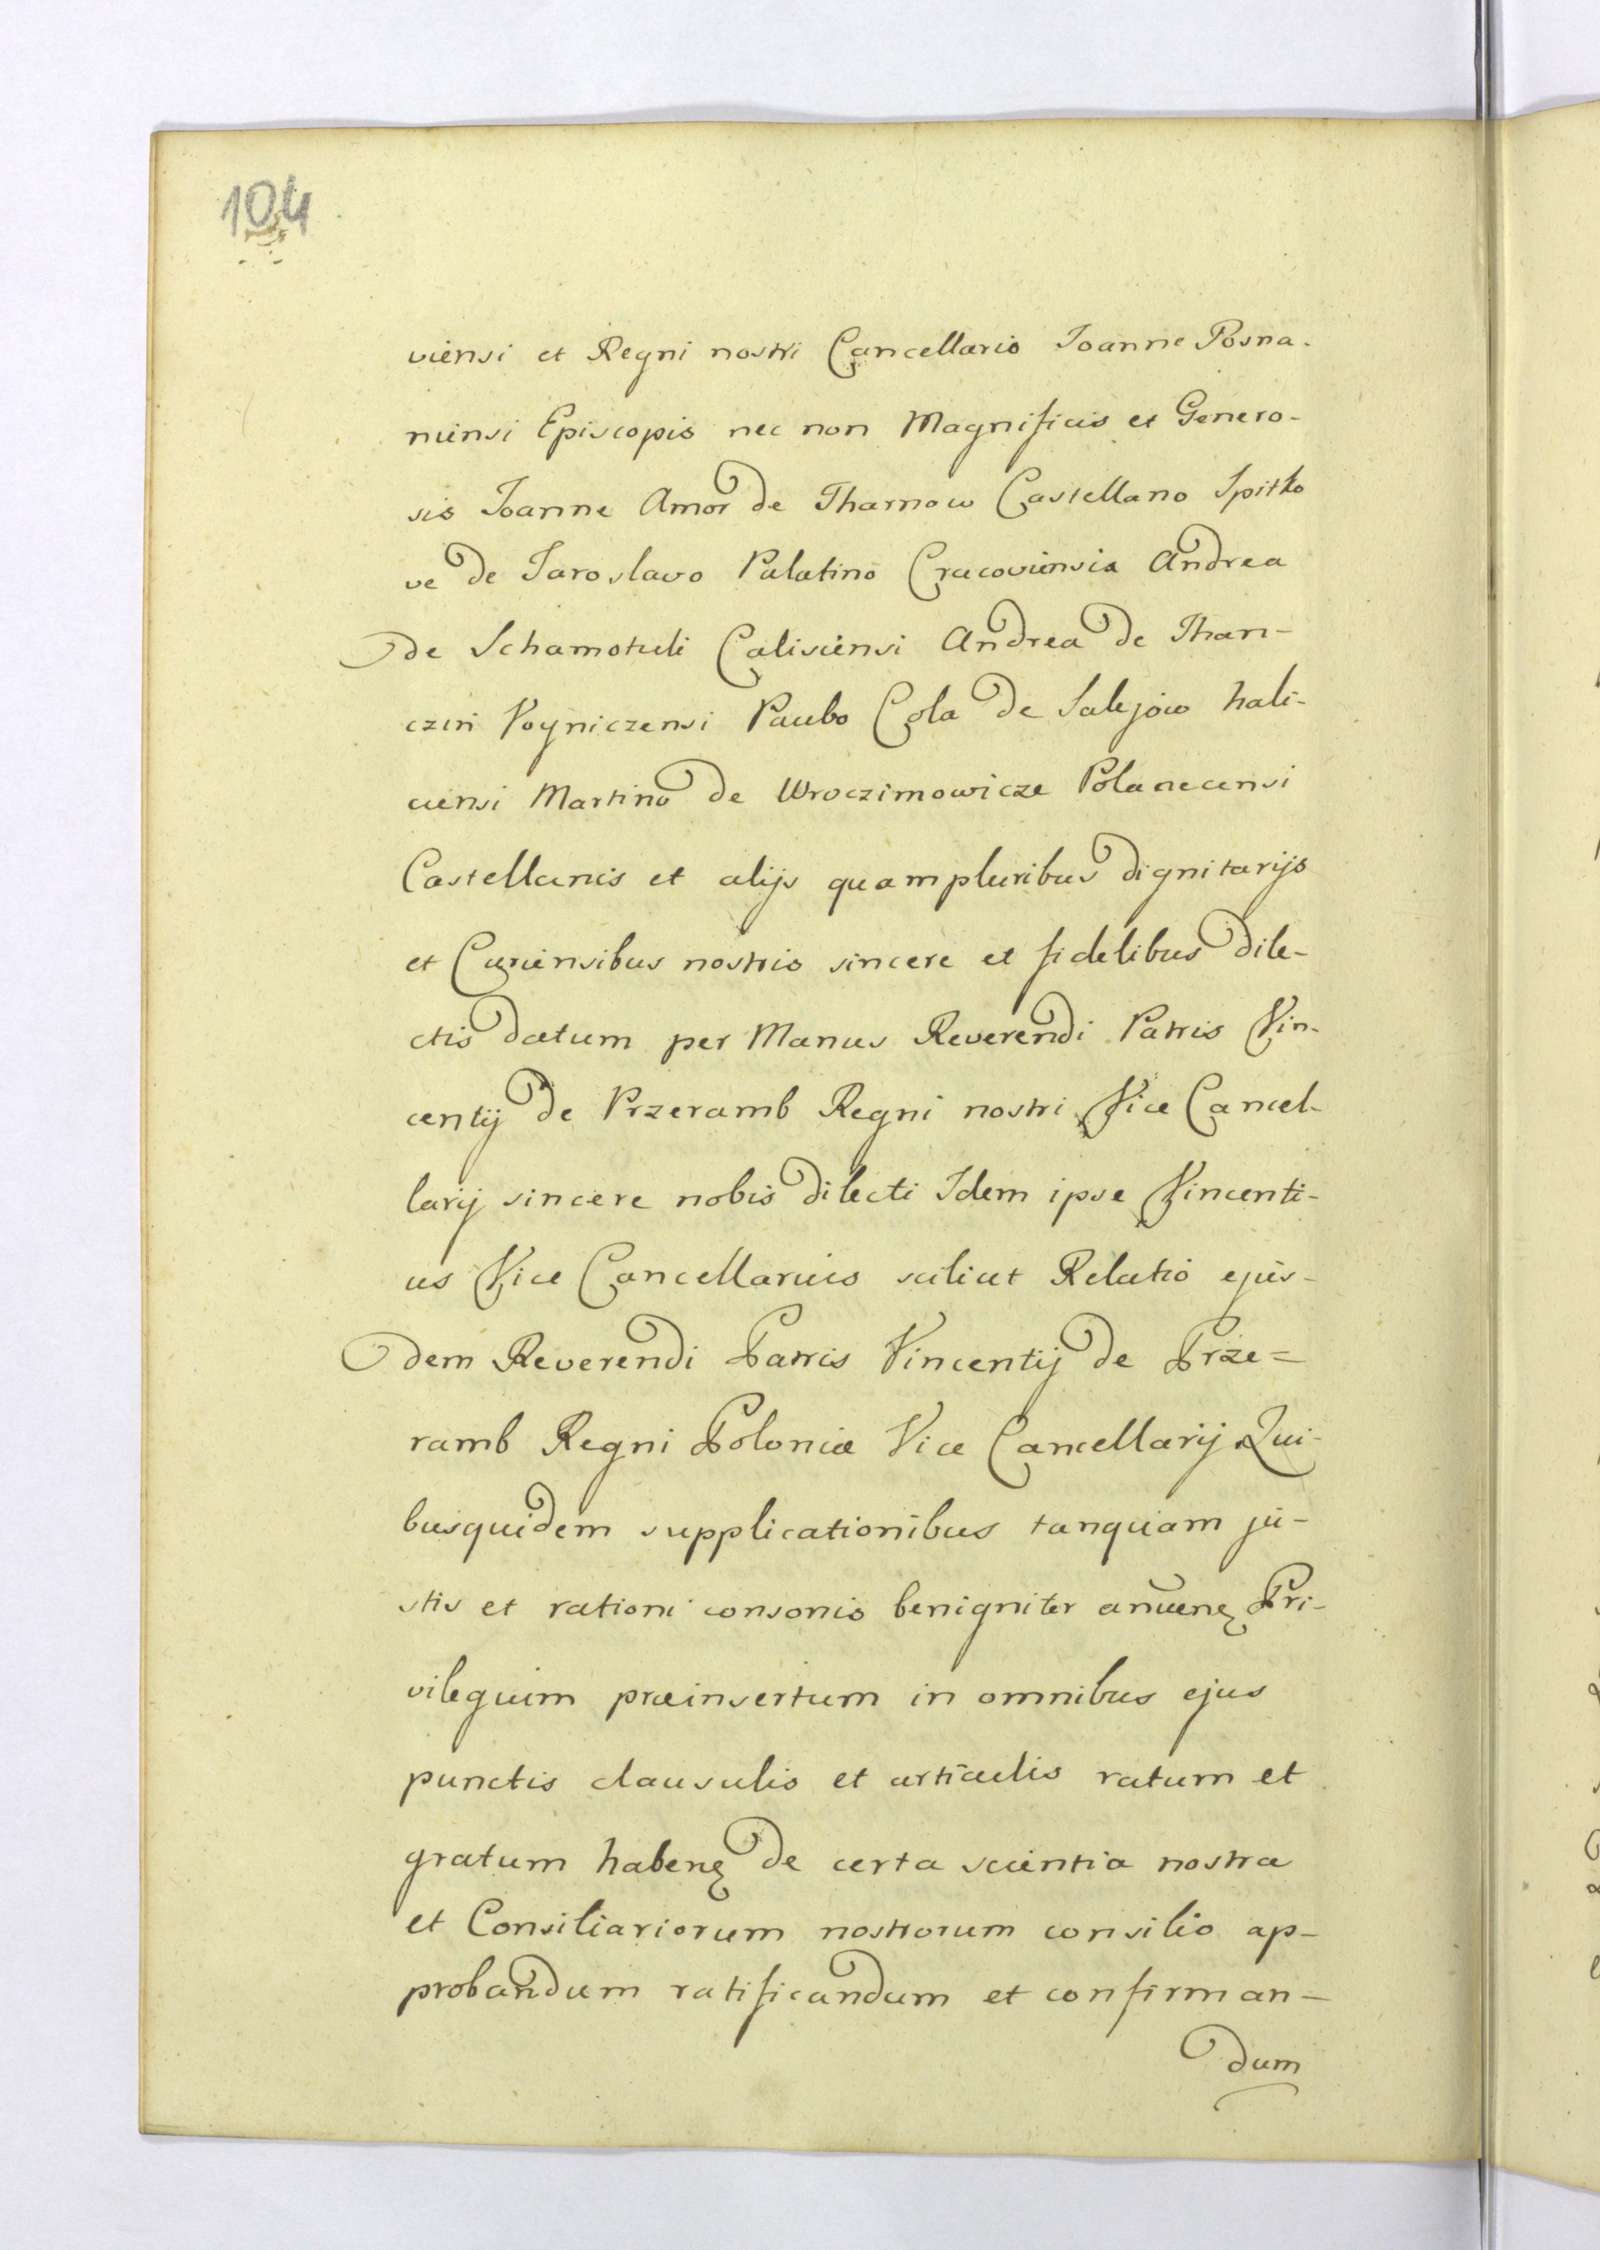 104
viensi et Regni nostri Cancellario Joanne Posna-
niensi Episcopis nec non Magnificis et Genero-
sis Joanne Amor de Tharnow Castellano Spitko
ve de Jaroslavo Palatino Cracoviensia Andrea
de Schamotuli Calisiensi Andrea de Than-
czin Voyniczensi Paulo Cola de Salejow hali-
ciensi Martino de Wroczimowicze Polanecensi
Castellanis et alijs quampluribus dignitarijs
et Curiensibus nostris sincere et fidelibus dile-
ctis datum per Manus Reverendi Patris Vin-
centij de Przeramb Regni nostri Vice Cancel-
larij sincere nobis dilecti Idem ipse Vincenti-
us Vice Cancellarius scilicet Relatio ejus-
dem Reverendi Patris Vincentij de Prze=
ramb Regni Poloniæ Vice Cancellarij Qui-
busquidem supplicationibus tanquam ju-
stis et rationi consonis benigniter anuenȩ Pri-
vilegium præinsertum in omnibus ejus
punctis clausulis et articulis ratum et
gratum habenȩ de certa scientia nostra
et Consiliariorum nostrorum consilio ap-
probandum ratificandum et confirman-
dum